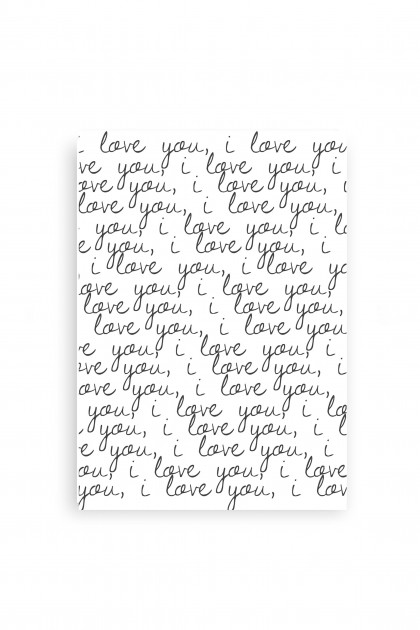 i love you, i love you
ve you, i love you, i
ove you, i love you, i
love you, i love you,
you, i love you, i lo
e you, i love you, i
i love you, i love yo
ove you, i love you,
love you, i love you,
love you, i love you
re you, i love you, i
ove you, i love you, i
ove you, i love you,
you, i love you, i lo
e you, i love you, i l
ve you, i love you, i
ou, i love you, i love
you, i love you, i lov